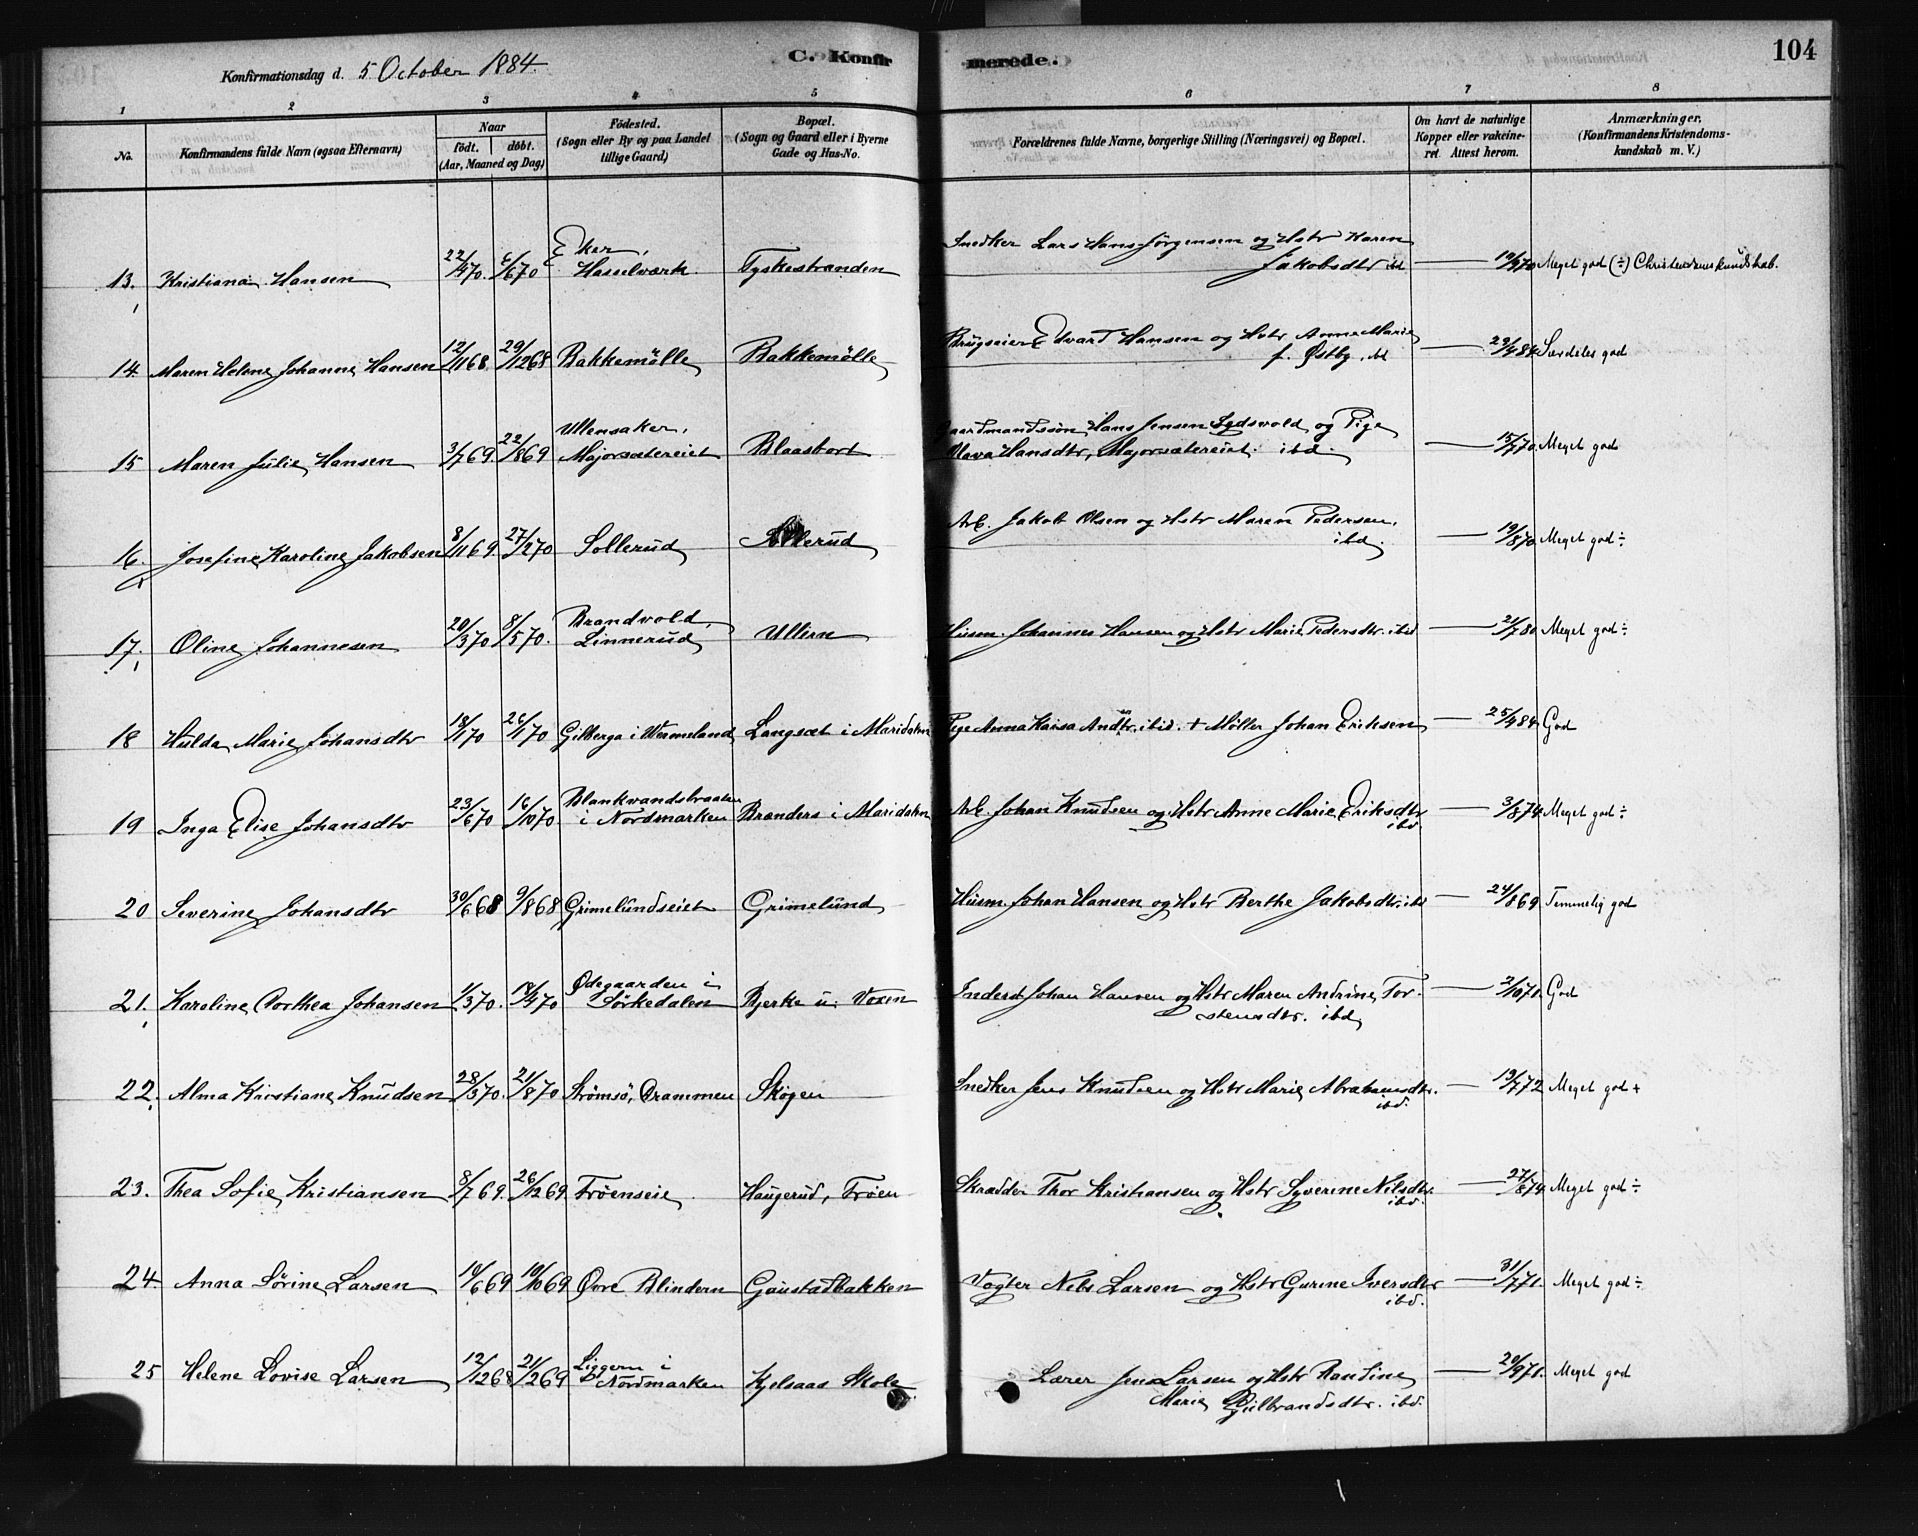 Konfirmationsdag d. 5 October 1884.
C. Konfir
merede.
104
1 2 3 4 5 6 7 8
No.
Konfirmandens fulde Navn (ogsaa Efternavn)
Naar
født. døbt.
(Aar, Maaned og Dag)
Fødested.
(Sogn eller By og paa Landet
tillige Gaard)
Bopæl.
(Sogn og Gaard eller i Byerne
Gade og Hus-No.
Forældrenes fulde Navne, borgerlige Stilling (Næringsvei) og Bopæl.
Om havt de naturlige
Kopper eller vakcine-
ret. Attest herom.
Anmærkninger.
(Konfirmandens Kristendoms-
kundskab m. V.)
Eker, Snedker Lars Hans Jörgensen og Hstr Karen
13. Kristiana Hansen 22/4 70. 6/6 70 Hasselværk Tyskestranden Jakobsdtr ibd — 19/9 70 Meget god (÷) Christendomskundskab.
Brugseier Edvard Hansen og Hstr Anne Marie
14. Maren Helene Johanne Hansen 12/11 68. 29/12 68 Bakkemölle Bakkemölle f. Østby, ibd — 29/4 84 Særdeles god
Ullensaker, Gaardmandssøn Hans Jensen Lydsvold og Pige
15 Maren Julie Hansen 3/7 69. 22/8 69 Majorsætereiet Blaasbort Olava Hansdtr, Majorsætereiet. ibd. — 15/7 70. Meget god
Arb. Jakob Olsen og Hstr Maren Pedersen,
16. Josefine Karoline Jakobsen 8/11 69. 27/2 70 Sollerud Sollerud ibd. — 19/8 70 Meget god ÷
Brandvold,
17. Oline Johannesen 20/3 70 8/5 70. Linnerud Ullern Husm. Johannes Hansen og Hstr Marie Pedersdtr. ibid — 2/7 80 Meget god ÷
18 Hulda Marie Johansdtr 18/1 70 26/1 70 Gilberga i Wermeland Langsæt i Maridalen Pige Anna Kaisa Andtr. ibid. + Møller Johan Eriksen — 25/4 84 God
Blankvandsbraaten
19 Inga Elise Johansdtr 23/6 70 16/10 70. i Nordmarken Brænders i Maridalen Arb. Johan Knudsen og Hstr Anne Marie Eriksdtr — 3/8 74. Meget god ÷
ibd.
20 Severine Johansdtr 30/6 68 9/8 68 Grimelundseiet Grimelund Husm. Johan Hansen og Hstr Berthe Jakobsdtr. ibd — 24/8 69 Temmelig god
Ødegaarden i
21. Karoline Dorthea Johansen 1/3 70. 18/4 70 Sørkedalen Bjerke u. Voxen Inderst Johan Hansen og Hstr Maren Andrine Tor- — 2/10 71. God
stensdtr. ibd
22. Alma Kristiane Knudsen 28/3 70. 21/8 70 Strömsö, Drammen Skogen Snedker Jens Knudsen og Hstr Marie Abrahamsdtr. — 13/7 72 Meget god +
ibd.
23. Thea Sofie Kristiansen 8/7 69. 26/12 69. Fröenseie Haugerud, Fröen Skrædder Thor Kristiansen og Hstr Syverine Nilsdtr. — 27/8 74. Meget god ÷
ibd.
24. Anna Sörine Larsen 10/6 69 10/10 69 Övre Blindern Gaustadbakken Vogter Nils Larsen og Hstr Gurine Iversdtr — 31/7 71. Meget god ÷
ibd.
Liggern i
25 Helene Lovise Larsen 12/12 68 21/2 69 Nordmarken Kjelsaas Skole Lærer Jens Larsen og Hstr Randine — 20/9 71. Meget god
Marie Gulbrandsdtr. ibd.